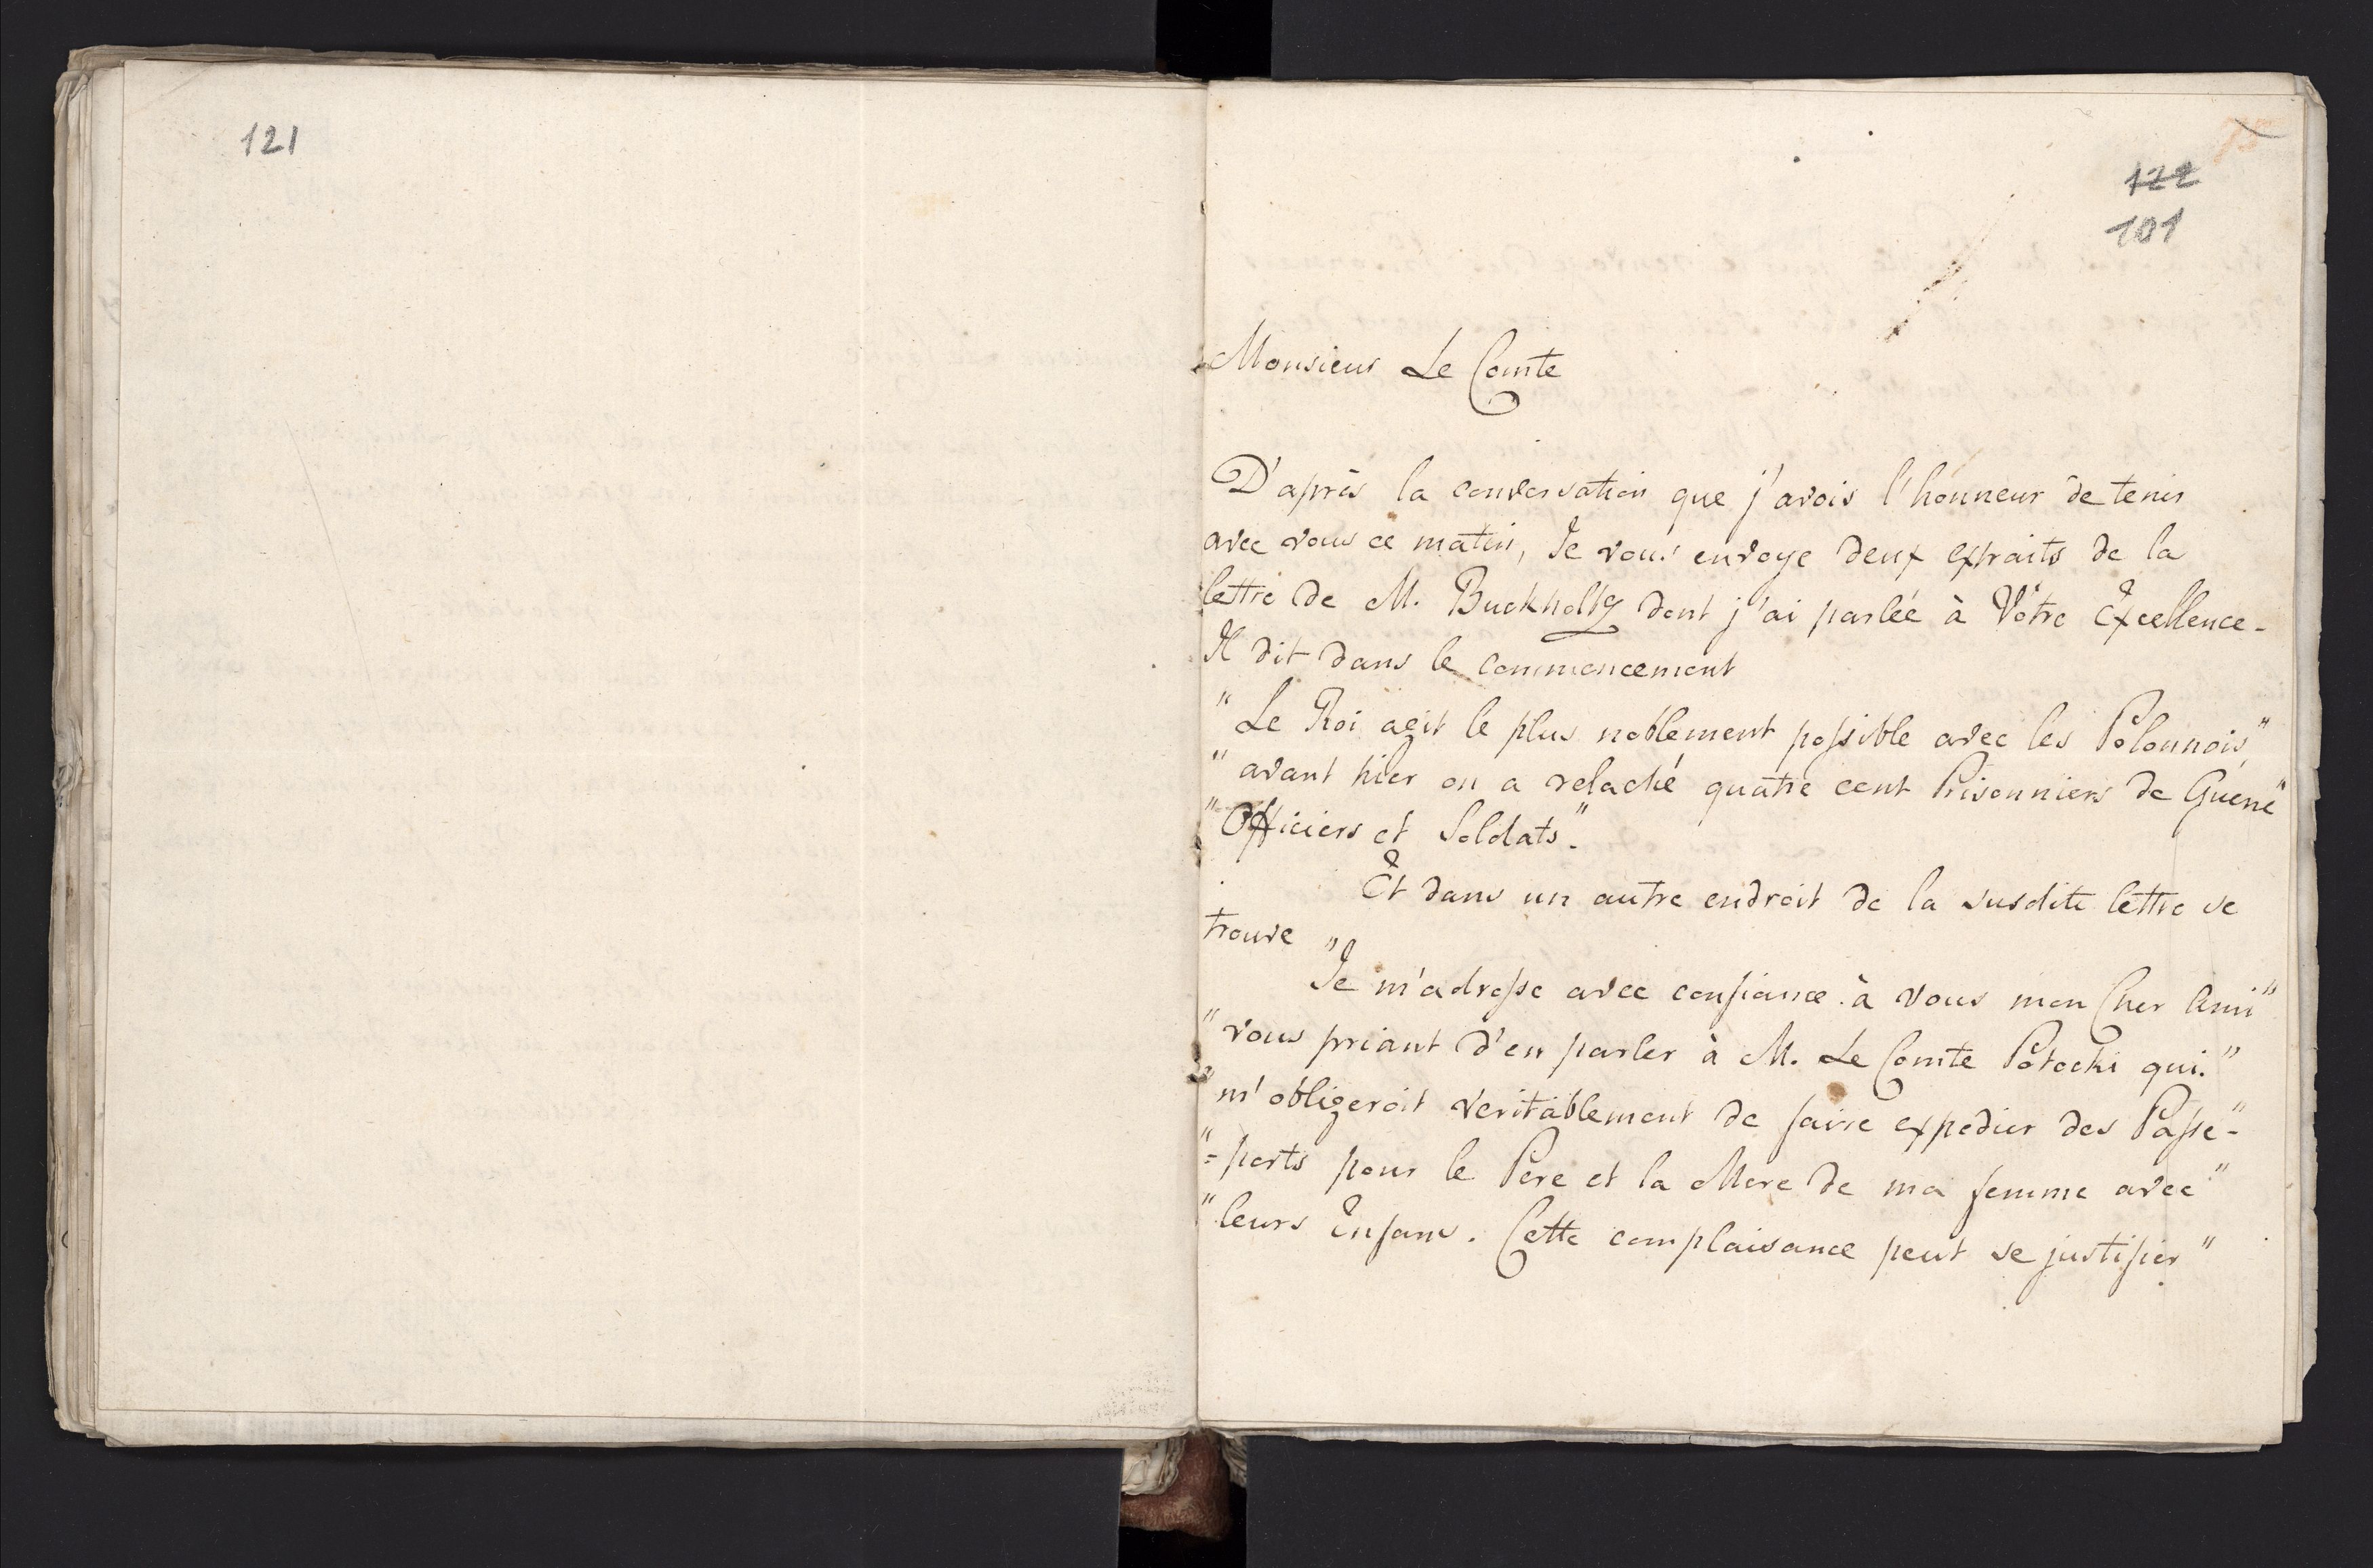 121
75
122
101
Monsieur Le Comte
D'après la conversation que j'avois l'honneur de tenir
avec vous ce matin, Je vous envoye deux extraits de la
lettre de M. Buckholtz dont j'ai parleé à Vôtre Excellence.
Il dit dans le commencement
"Le Roi agit le plus noblement possible avec les Polonnois,"
"avant hier on a relaché quatre cent Prisonniers de Guerre"
"Officiers et Soldats".
Et dans un autre endroit de la susdite lettre se
trouve
"Je m'adresse avec confiance à vous mon Cher Ami"
"vous priant d'en parler à M. Le Comte Potocki qui."
"m'obligeroit veritablement de faire expedier des Passe-"
"=ports pour le Pere et la Mere de ma femme avec"
"leurs Enfans. Cette complaisance peut se justifier"